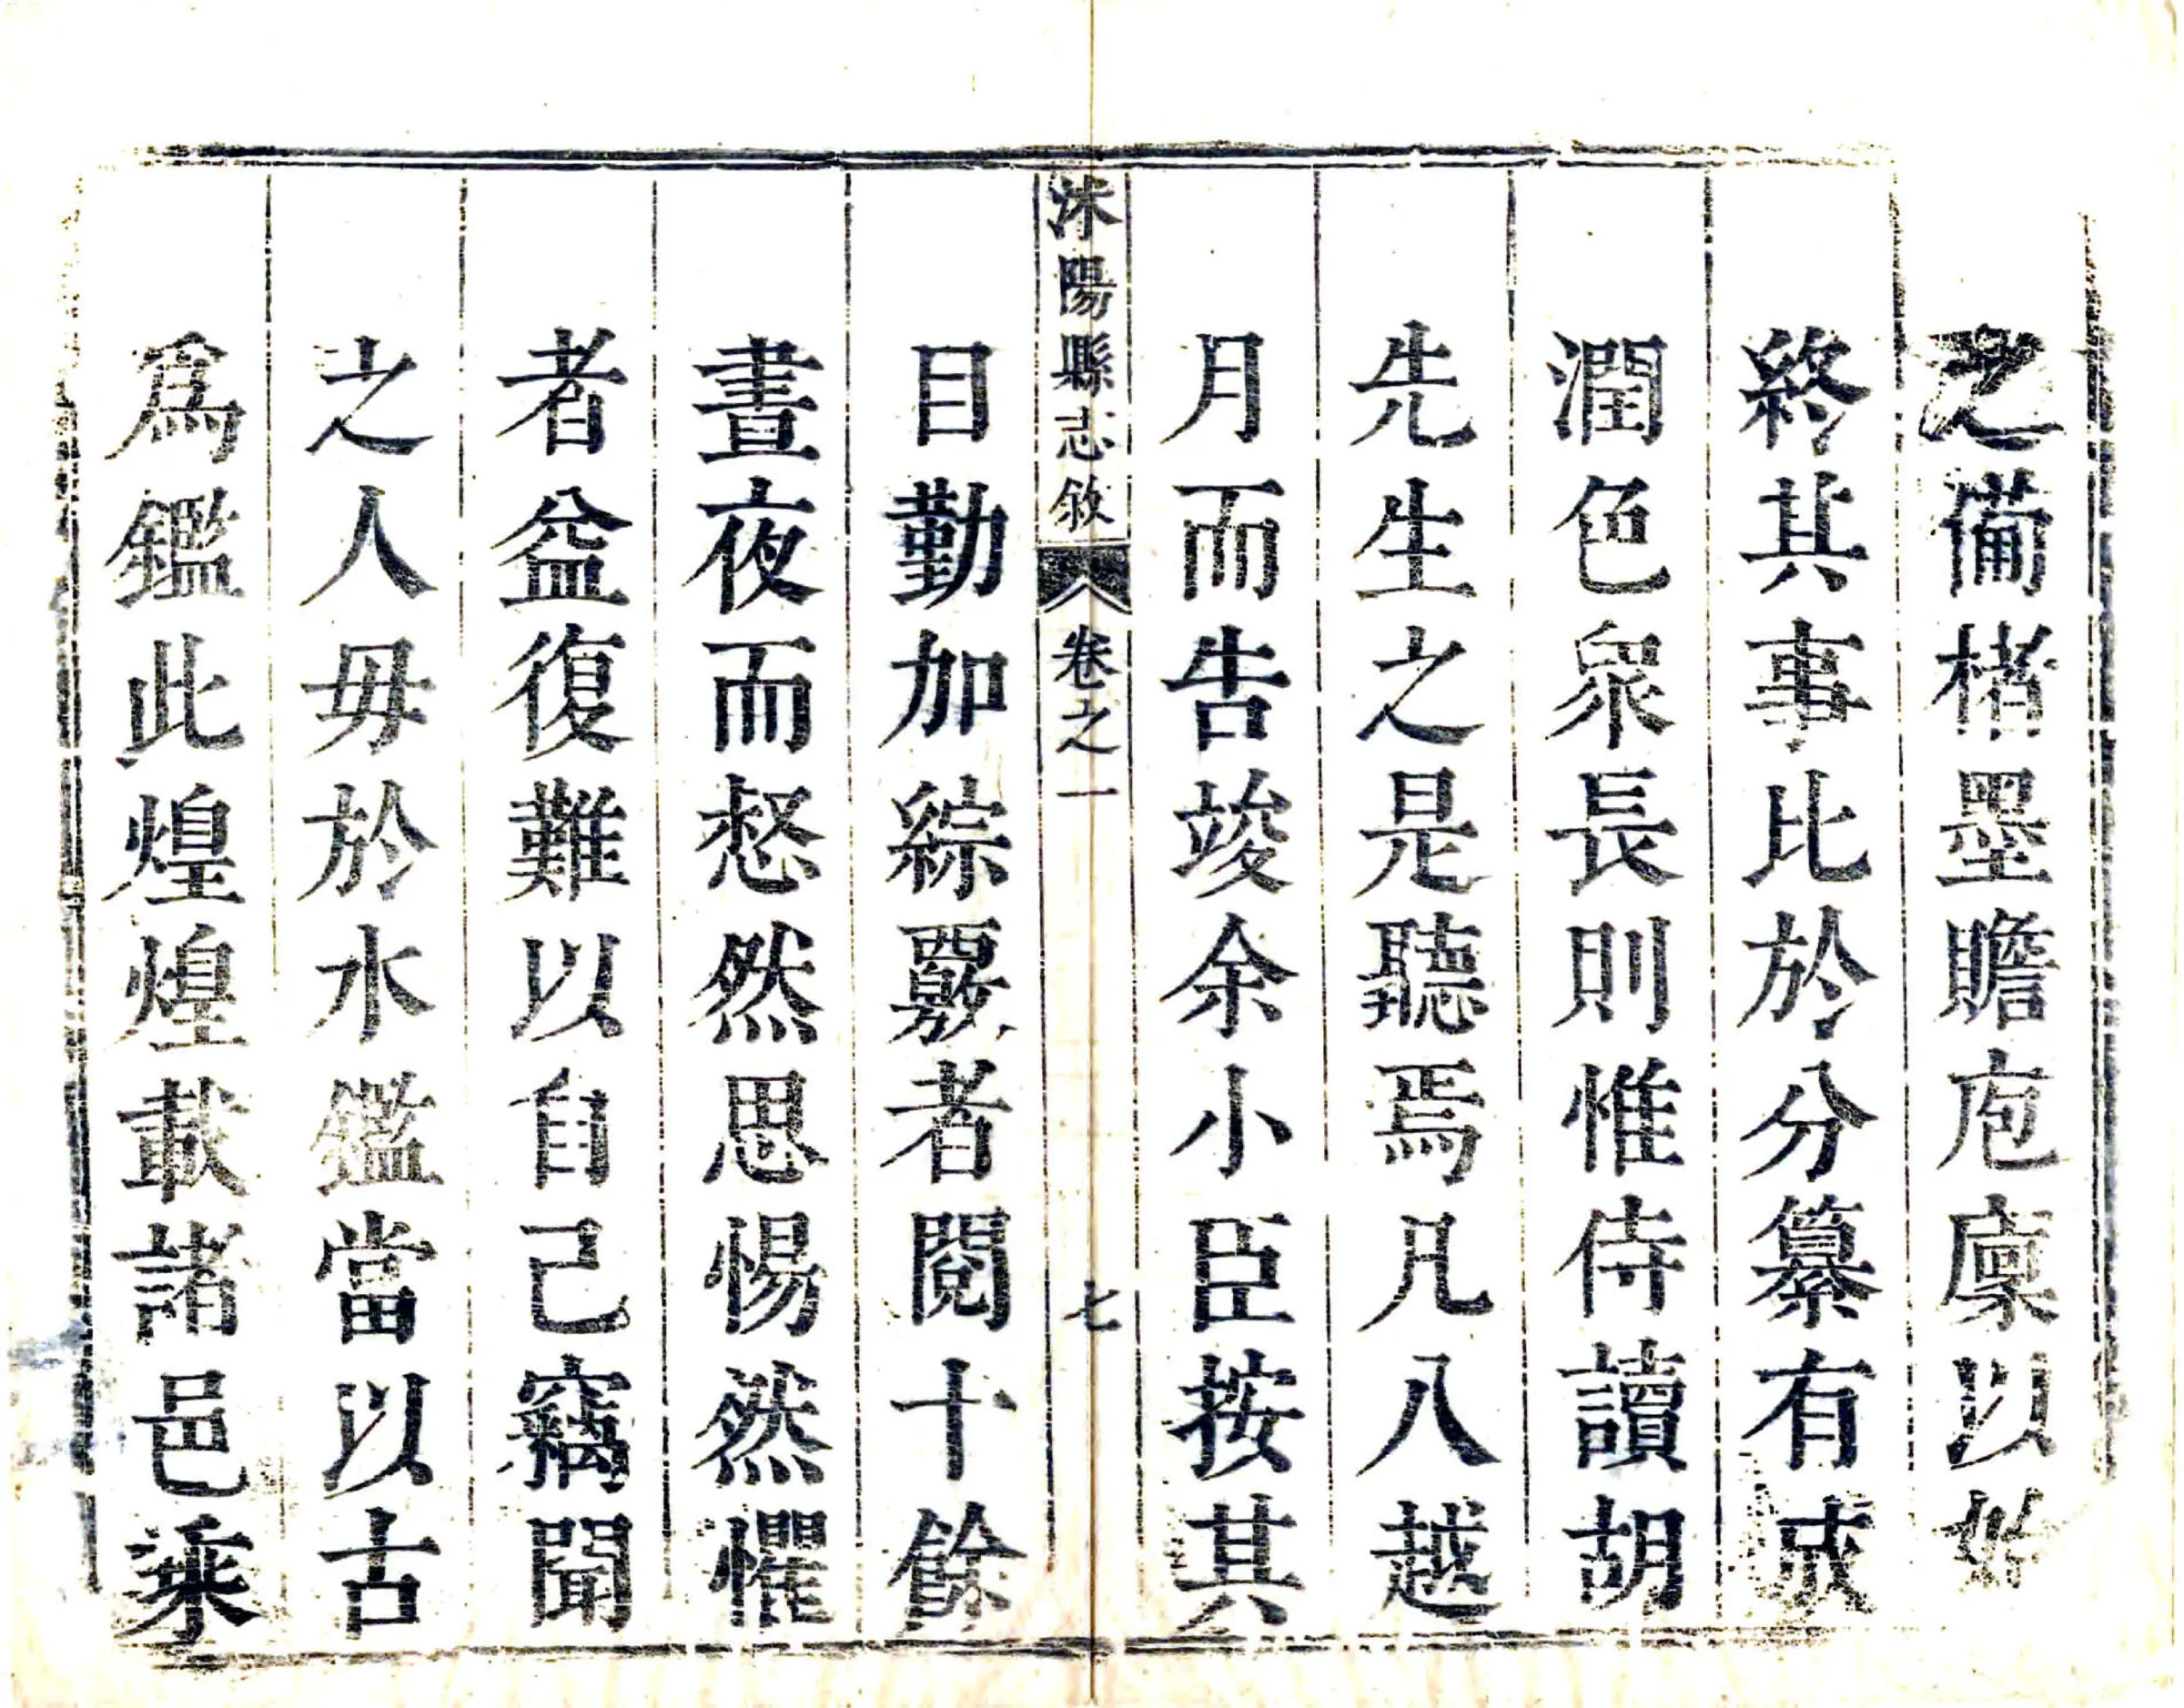 之備楮墨贍庖廩以始
終其事比於分纂有成
潤色眾長則惟侍讀胡
先生之是聽焉凡八越
月而告竣余小臣按其
沭陽縣志敘 卷之一 七
目勤加綜覈者閱十餘
晝夜而惄然思惕然懼
者益復難以自己竊聞
之人毋於水鑑當以古
爲鑑此煌煌載諸邑乘